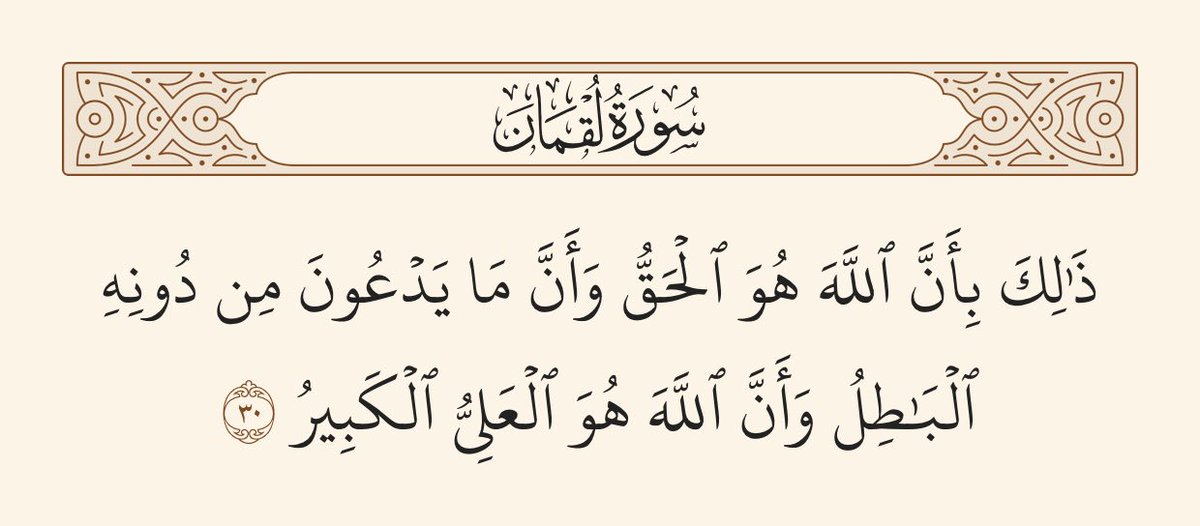 سُورَةُ لُقْمَان
ذَٰلِكَ بِأَنَّ ٱللَّهَ هُوَ ٱلْحَقُّ وَأَنَّ مَا يَدْعُونَ مِن دُونِهِ
ٱلْبَـٰطِلُ وَأَنَّ ٱللَّهَ هُوَ ٱلْعَلِىُّ ٱلْكَبِيرُ ٣٠